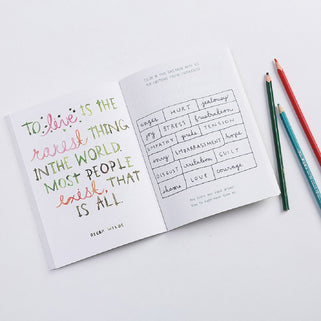 TO live IS THE
rarest THING
IN THE WORLD.
MOST PEOPLE
exist, THAT
IS ALL.
OSCAR WILDE
anger HURT jealousy
joy STRESS frustration
EMPATHY pride TENSION
envy EMBARRASSMENT hope
DISGUST irritation GUILT
shame LOVE courage